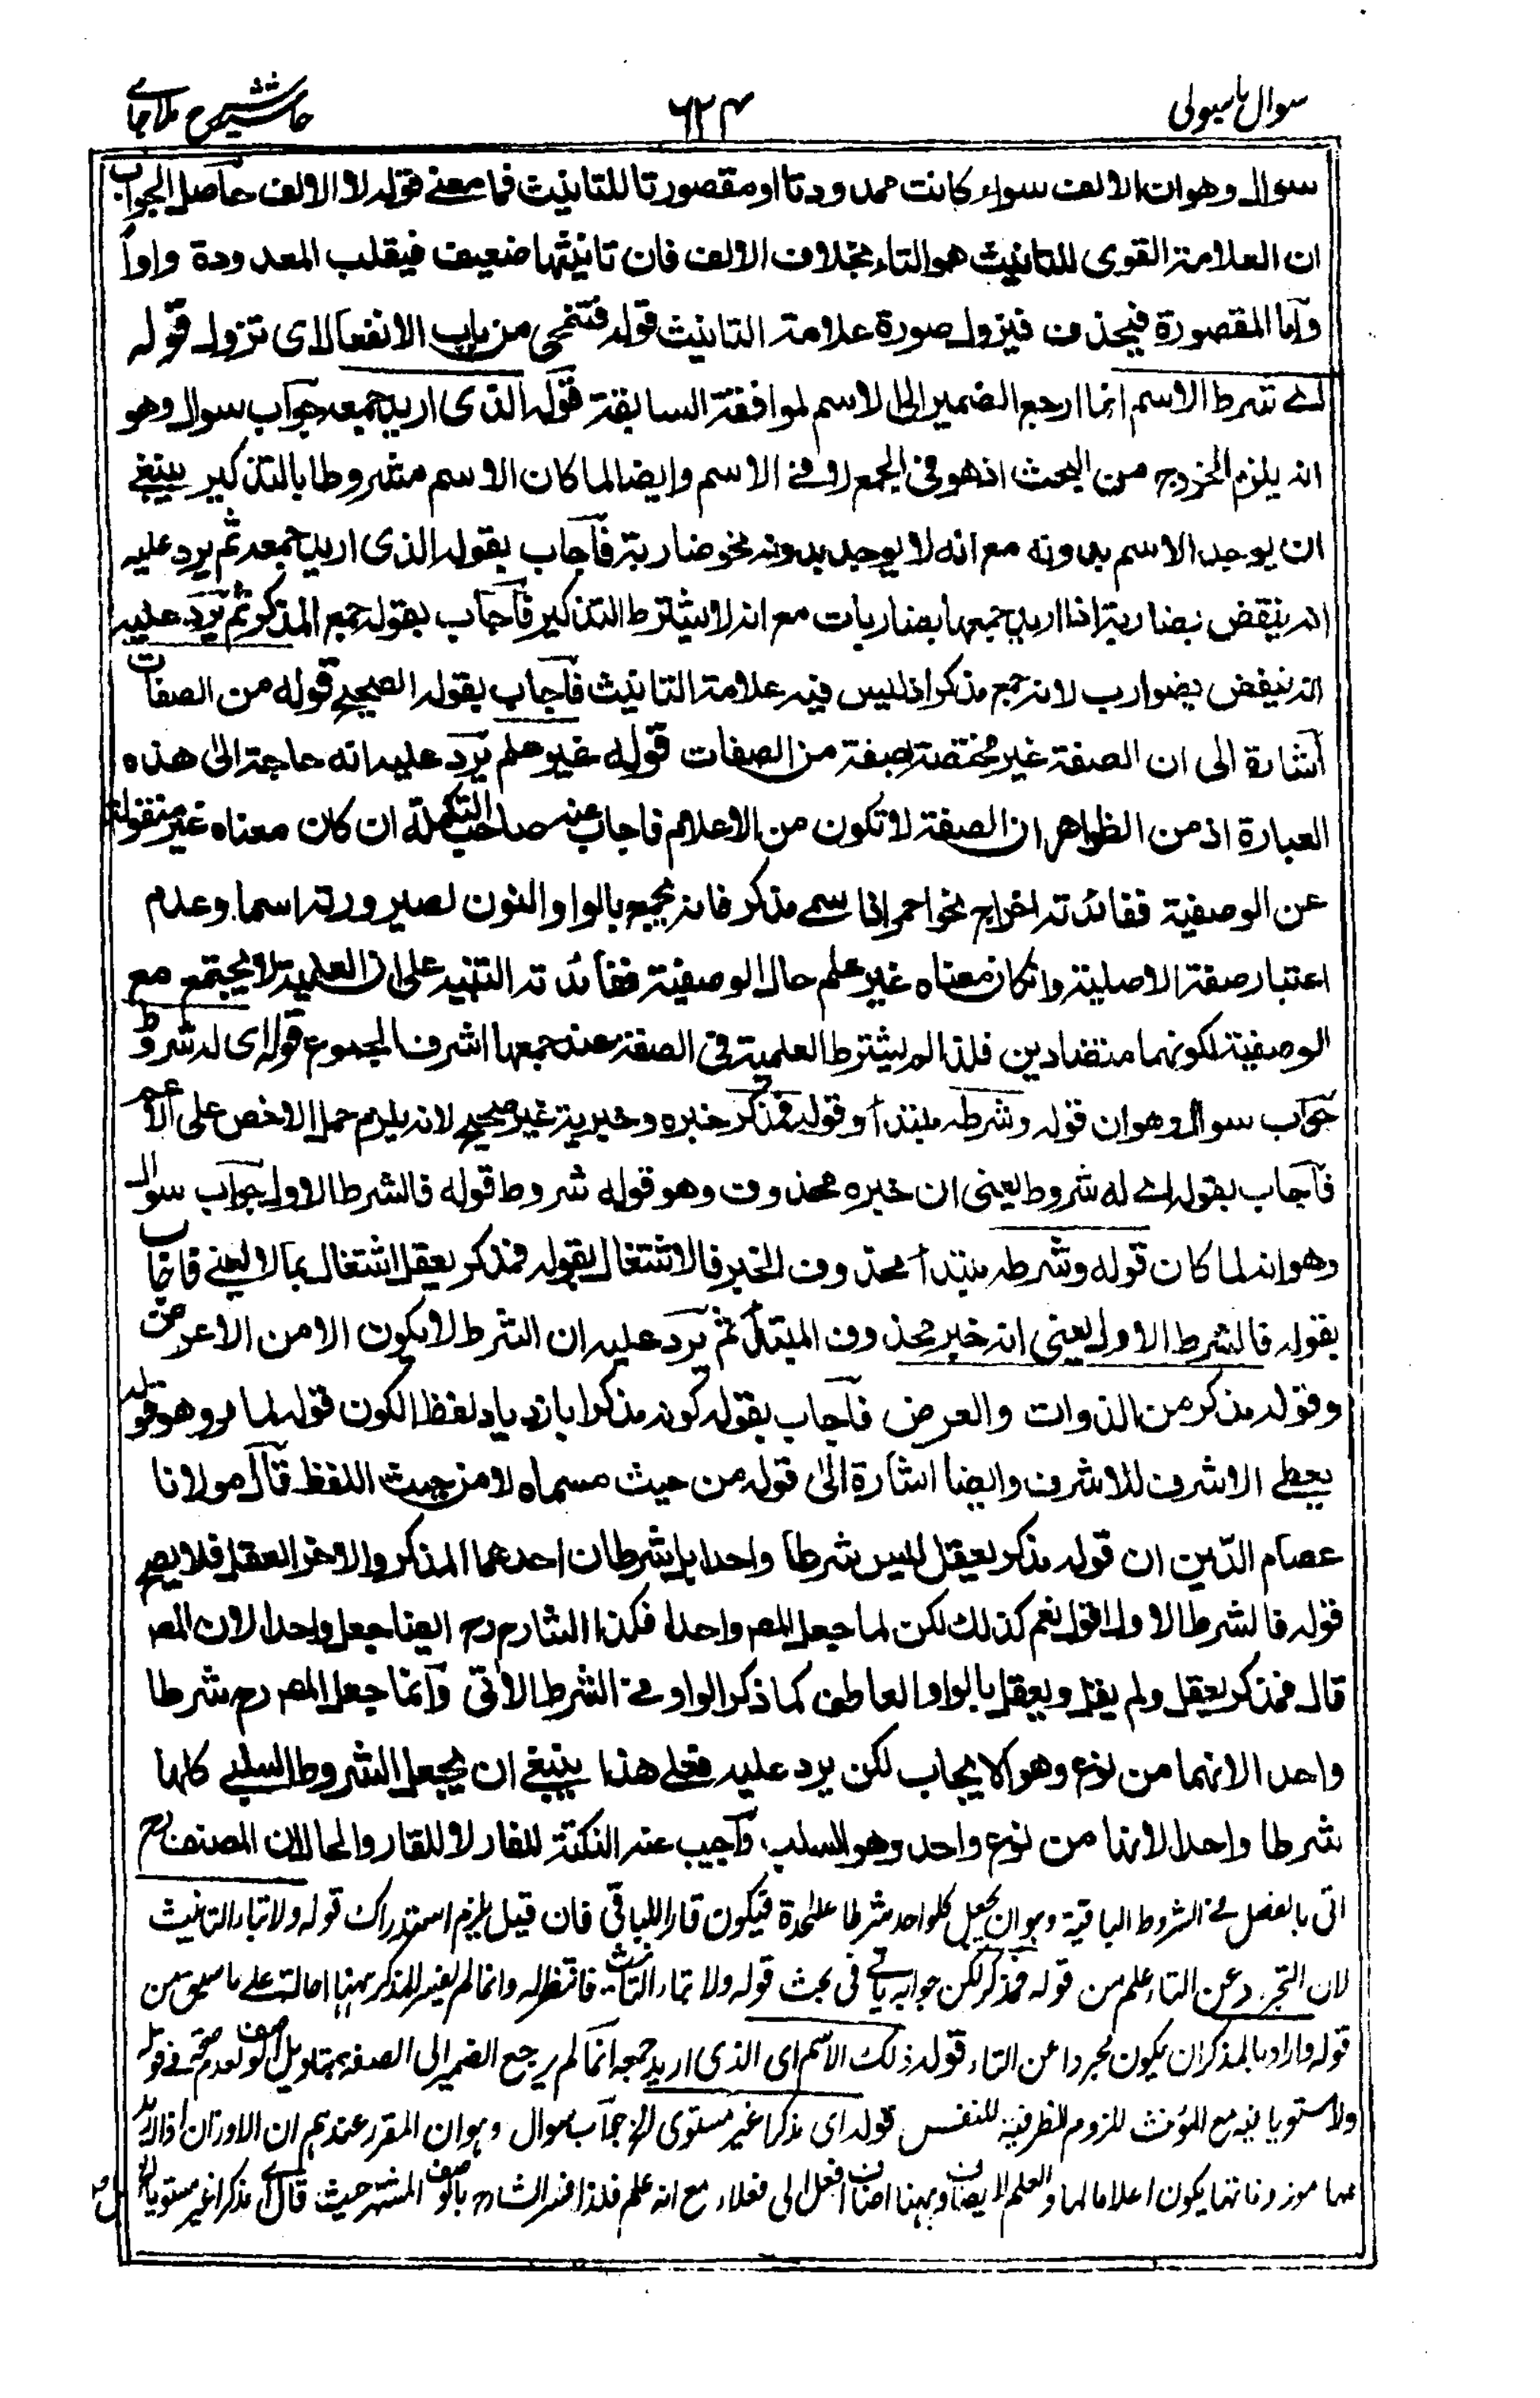 سوال باسولی
٦٢٤
حاشیہ شرح ملا جامے
سوال وهو ان الالف سواء كانت ممدودتا او مقصورتا للتانيث فما معنے قوله لا الالف حاصل الجواب
ان العلامة القوى للتانيث هو التاء بخلاف الالف فان تانيثها ضعيف فيقلب الممدودة واواً
وأما المقصورة فيحذف فيزول صورة علامة التانيث قوله فتنمحى من باب الانفعال اى تزول قوله
اے شرط الاسم انما ارجع الضمير الى الاسم لموافقة السابقة قوله الذى اريد جمعه جواب سوال وهو
انه يلزم الخروج من البحث اذ هو فى الجمع لا فے الاسم وايضا لما كان الاسم مشروطا بالتذكير ينبغے
ان يوجد الاسم بدونه مع انه لا يوجد بدونه نحو ضاربة فآجاب بقوله الذى اريد جمعه ثم يرد عليه
انه ينقض بضاربة اذا اريد جمعها بضاربات مع انه لا يشترط التذكير فآجاب بقوله جمع المذكر ثم يرد عليه
انه ينقض بضوارب لانه جمع مذكر اذ ليس فيه علامة التانيث فآجاب بقوله الصحيح قوله من الصفات
آشارة الى ان الصفة غير مختصة بصفة من الصفات قوله غير علم يرد عليه انه حاجة الى هذه
العبارة اذ من الظواهر ان الصفة لا تكون من الاعلام فاجاب عنه صاحب التكملة ان كان معناه غير منقولة
عن الوصفية ففائدته اخراج نحو احمر اذا سمے مذكر فانه يجمع بالواو والنون لصيرورته اسما وعدم
اعتبار صفة الاصلية وان كان معناه غير علم حال الوصفية ففائدته التنبيه على ان العلمية لا يجتمع مع
الوصفية لكونهما متضادين فلذا لم يشترط العلمية فى الصفة عند جمعها اشرف الجموع قوله اى له شروط
جواب سوال وهو ان قوله وشرطه مبتدأ وقوله فمذكر خبره وخبرية غير صحيح لانه يلزم حمل الاخص على الاعم
فآجاب بقوله اے له شروط يعنى ان خبره محذوف وهو قوله شروط قوله فالشرط الاول جواب سوال
وهو انه لما كان قوله وشرطه مبتدأ محذوف الخبر فالاشتغال بقوله فمذكر يعقل اشتغال بما لا يعنے فاجاب
بقوله فالشرط الاول يعنى انه خبر محذوف المبتدأ ثم يرد عليه ان الشرط لا يكون الا من الاعراض
وقوله مذكر من الذوات والعرض فآجاب بقوله كونه مذكرا بازدياد لفظ الكون قوله لما مر وهو قوله
يعطے الاشرف للاشرف وايضا اشارة الى قوله من حيث مسماه لا من حيث اللفظ قال مولانا
عصام الدين ان قوله مذكر يعقل ليس شرطا واحدا بل شرطان احدهما المذكر والاخر العقل فلا يصح
قوله فالشرط الاول اقول نعم كذلك لكن لما جعل المص واحدا فكذا الشارح رح ايضا جعل واحدا لان المص
قال فمذكر يعقل ولم يقل ويعقل بالواو العاطف كما ذكر الواو فے الشرط الآتى وآنما جعل المص رح شرطا
واحدا لانهما من نوع وهو الايجاب لكن يرد عليه فعلے هذا ينبغے ان يجعل الشروط السلبے كلها
شرطا واحدا لانها من نوع واحد وهو السلب وآجيب عنه النكتة للفار لا للقار والحال ان المصنف رح
اتى بالفصل فے الشروط الباقية وهو ان يجعل كلواحد شرطا علحدة فيكون قارا للباقى فان قيل يلزم استدراك قوله ولا بتاء التانيث
لان التجرد عن التاء علم من قوله فمذكر لكن جوابه ياتے فى بحث قوله ولا بتاء التانيث فانتظر له وانما لم يفسر المذكر ههنا احالة علے ما سبق من
قوله واراد بالمذكر ان يكون مجردا عن التاء قوله ذلك الاسم اى الذى اريد جمعه انما لم يرجع الضمير الى الصفة بتاويل الوصف لعدم صحته فے قوله
ولا مستويا فيه مع المؤنث للزوم الظرفية للنفس قوله اى مذكرا غير مستوى الخ جواب سوال وهو ان المقرر عندهم ان الاوزان اذا اريد
بها موزوناتها يكون اعلاما لها والعلم لا يضاف وههنا اضاف افعل الى فعلاء مع انه علم فلذا فسر الشارح بالوصف المشتهر حيث قال اى مذكرا غير مستويا الخ